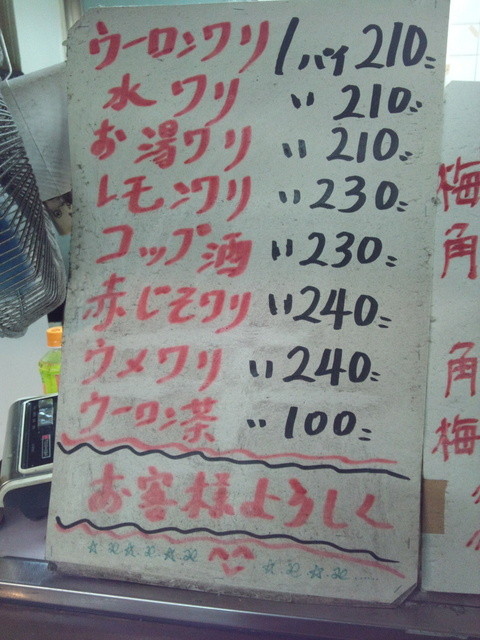 ウーロンワリ 1パイ 210=
水ワリ 〃 210=
お湯ワリ 〃 210=
レモンワリ 〃 230=
コップ酒 〃 230=
赤じそワリ 〃 240=
ウメワリ 〃 240=
ウーロン茶 〃 100=
お客様ようしく
梅
角
角
梅